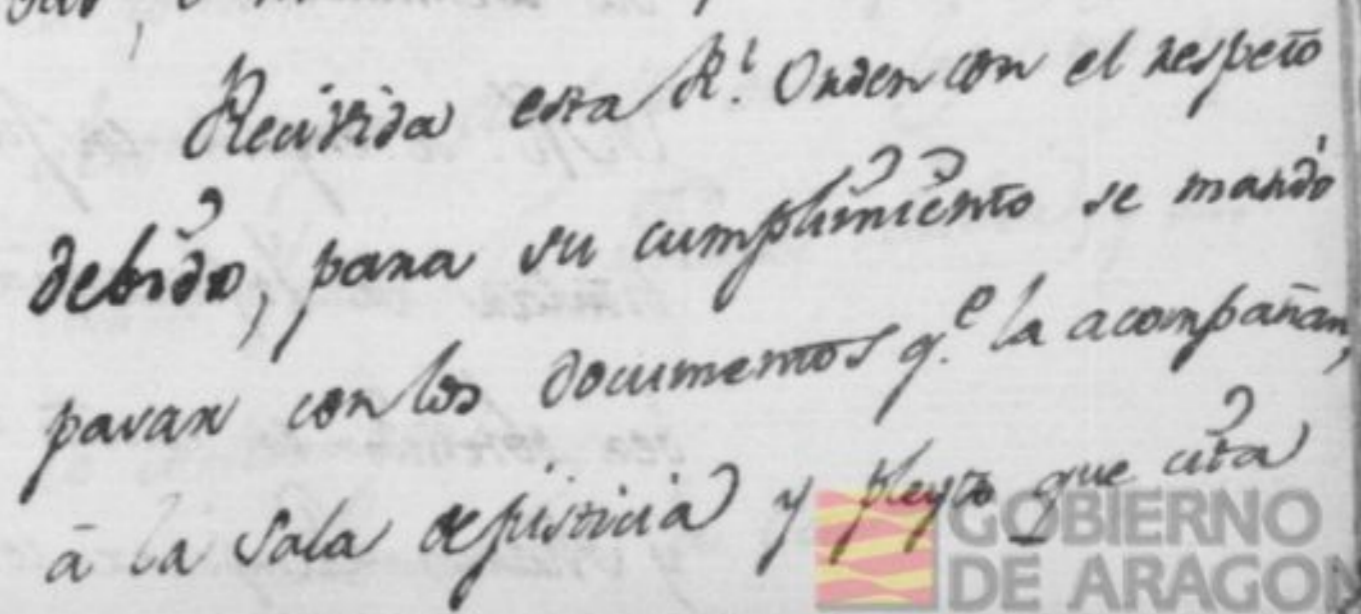 Recivida esta R.l Orden con el respeto
debido, para su cumplimiento se mandó
pasar con los documentos q.e la acompañan,
á la Sala de justicia y pleyto que cita
GOBIERNO
DE ARAGON